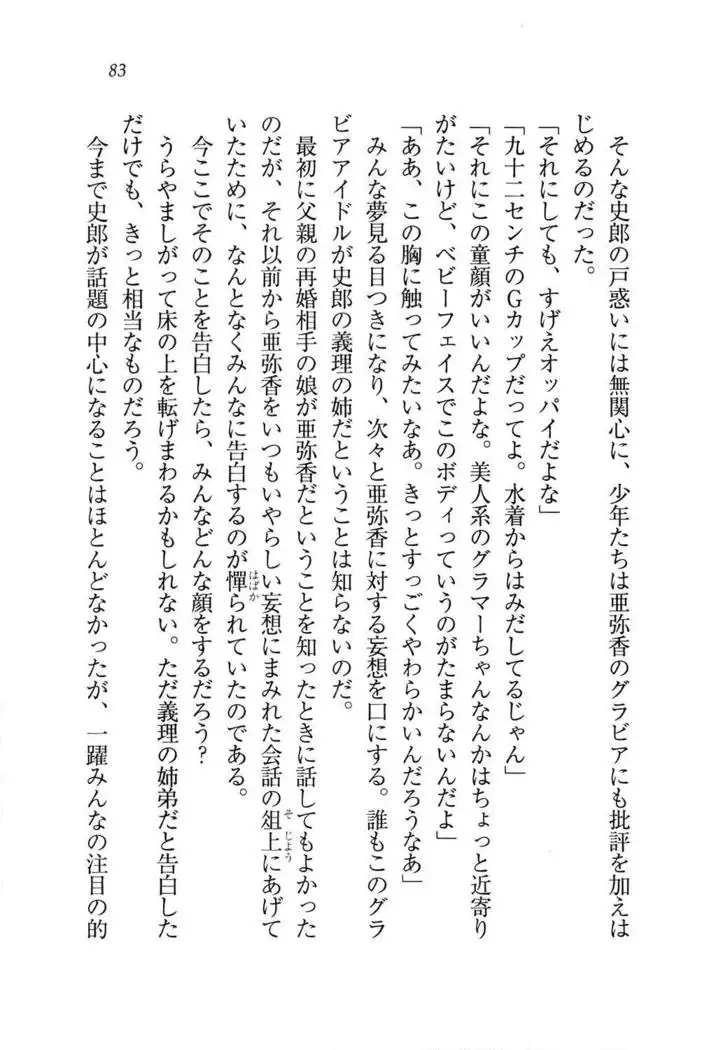 83
そんな史郎の戸惑いには無関心に、少年たちは亜弥香のグラビアにも批評を加えは
じめるのだった。
「それにしても、すげえオッパイだよな」
「九十二センチのGカップだってよ。水着からはみだしてるじゃん」
「それにこの童顔がいいんだよな。美人系のグラマーちゃんなんかはちょっと近寄り
がたいけど、ベビーフェイスでこのボディっていうのがたまらないんだよ」
「ああ、この胸に触ってみたいなあ。きっとすっごくやわらかいんだろうなあ」
みんな夢見る目つきになり、次々と亜弥香に対する妄想を口にする。誰もこのグラ
ビアアイドルが史郎の義理の姉だということは知らないのだ。
最初に父親の再婚相手の娘が亜弥香だということを知ったときに話してもよかった
そじょう
のだが、それ以前から亜弥香をいつもいやらしい妄想にまみれた会話の俎上にあげて
はばか
いたために、なんとなくみんなに告白するのが憚られていたのである。
今ここでそのことを告白したら、みんなどんな顔をするだろう？
うらやましがって床の上を転げまわるかもしれない。ただ義理の姉弟だと告白した
だけでも、きっと相当なものだろう。
今まで史郎が話題の中心になることはほとんどなかったが、一躍みんなの注目の的